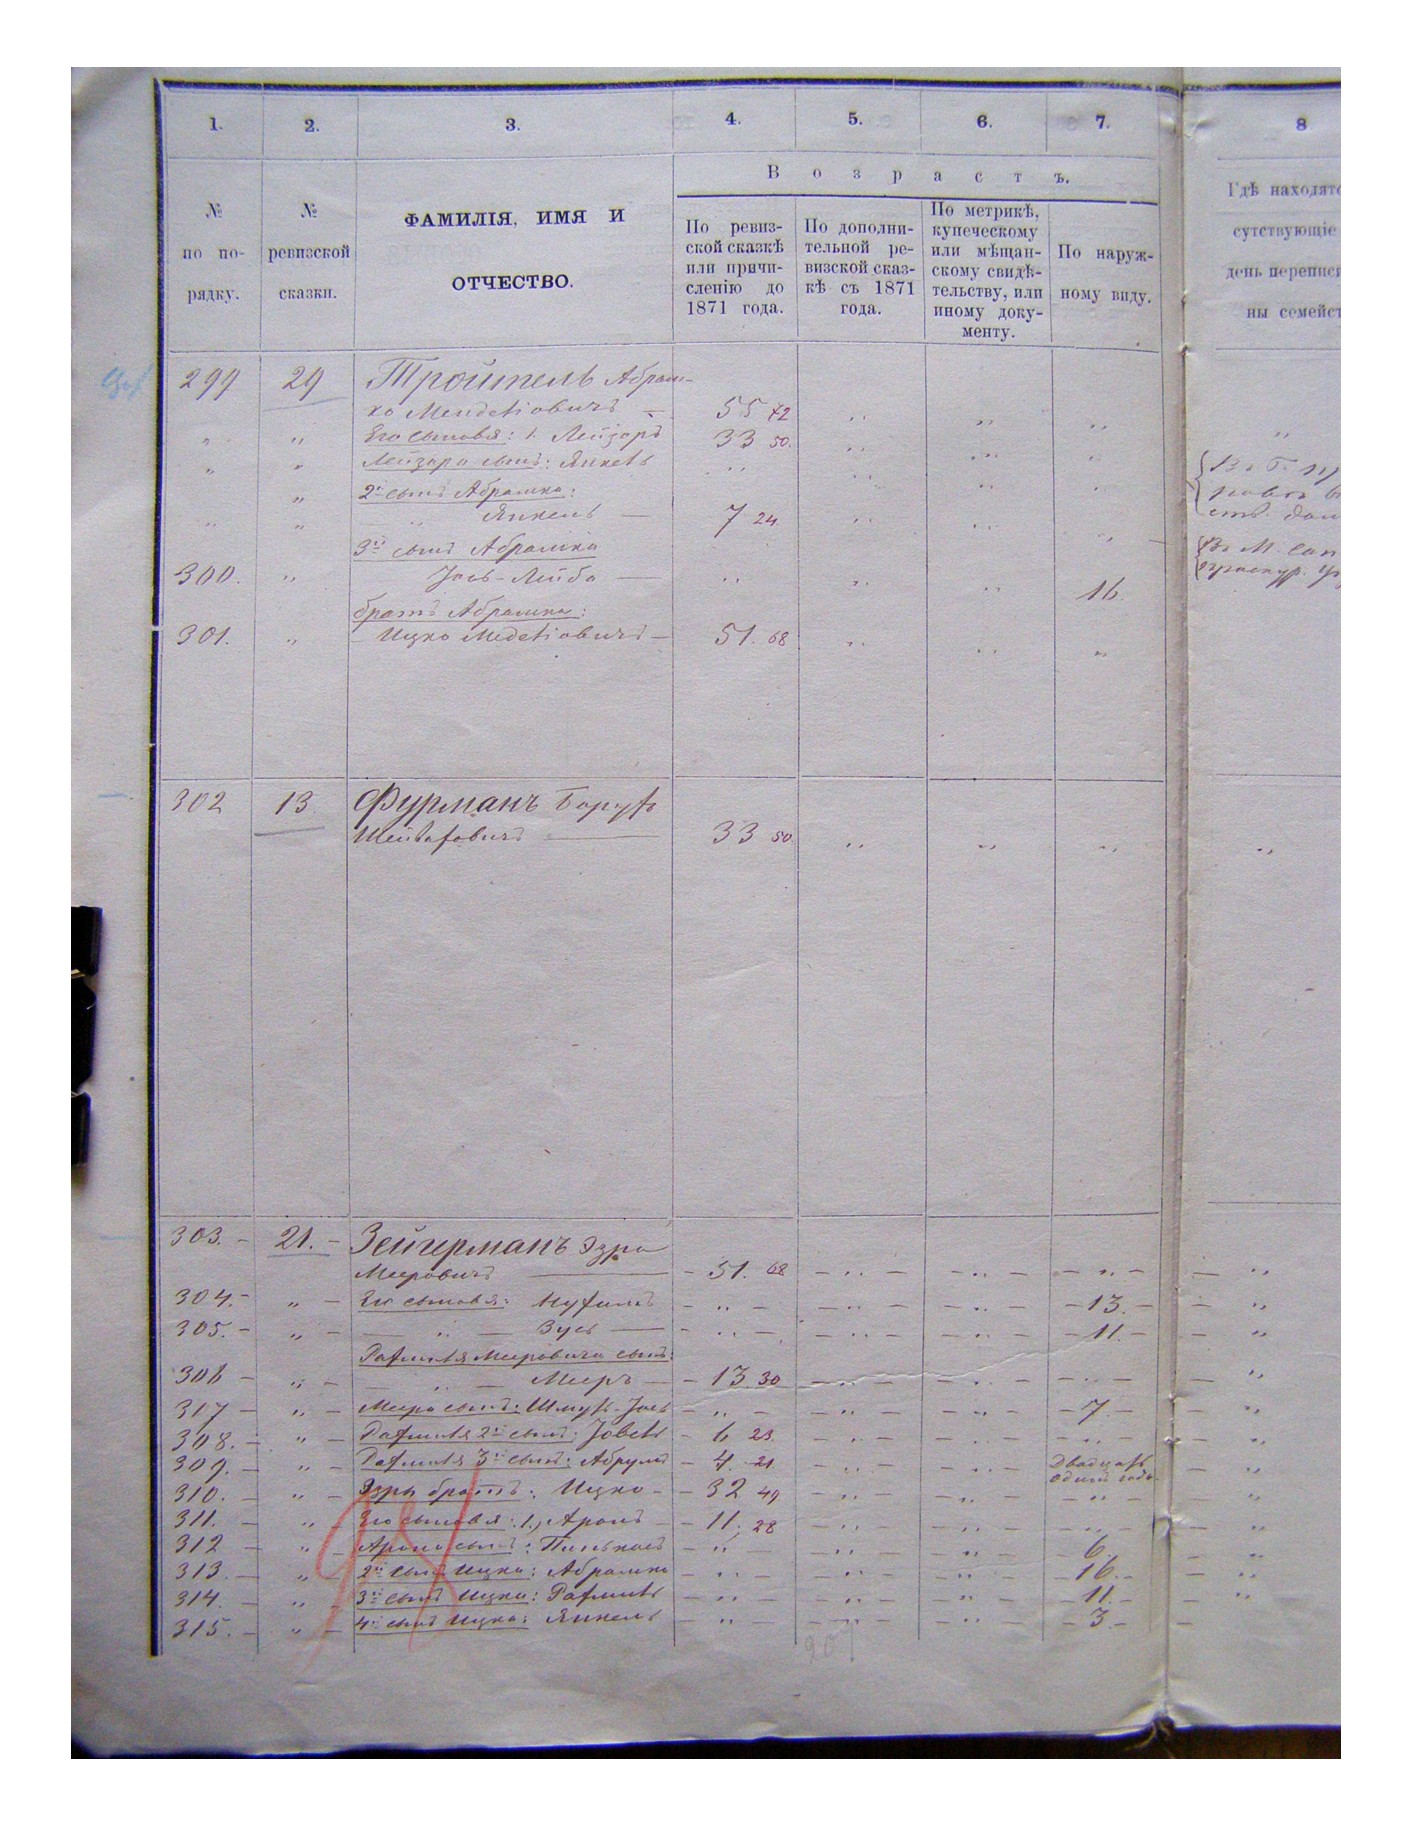 1. 2. 3. 4. 5. 6. 7. 8
Возрастъ.
№ по по-рядку.
№ ревизской сказки.
ФАМИЛІЯ, ИМЯ И
ОТЧЕСТВО.
По ревиз-
ской сказкѣ
или причи-
сленію до
1871 года.
По дополни-
тельной ре-
визской сказ-
кѣ съ 1871
года.
По метрикѣ,
купеческому
или мѣщан-
скому свидѣ-
тельству, или
иному доку-
менту.
По наруж-
ному виду.
Гдѣ находятс
сутствующіе
день переписи
ны семейст
299 29 Тройтель Абрам-
ко Менделіовичъ — 55 72 „ „ „ „
„ „ Его сыновья: 1. Лейзоръ 33 50. „ „ „
„ „ Лейзора сынъ: Янкель „ „ „ „
„ 2й сынъ Абрамка:
„ „ Янкель — 7 24. „ „ „
3й сынъ Абрамка
300. „ Іось-Лейба — „ „ „ 16.
братъ Абрамка:
301. „ — Ицко Меделіовичъ — 51. 68 „ „ „
302 13 Фурманъ Борухъ
33 50. „ „ „ „
303. — 21. — Зейгерманъ Эзра
Мееровичъ — 51. 68 — „ — — „ — — „ — — „
304. — „ — Его сыновья: Нухимъ — „ — — „ — — „ — — 13. — — „
305. — „ — — „ — Зусь — — „ — — „ — — „ — — 11. — — „
Рахмиля Мееровича сынъ:
306 — „ — — „ — Мееръ — — 13 30 — „ — — „ — — „ — — „
317 — „ — Меера сынъ: Шмуль-Іось — „ — — „ — — „ — — 7 — — „
308. — „ — Рахмиля 2й сынъ: — 6 23 — „ — — „ — — „ — — „
309. — „ — Рахмиля 3й сынъ: Абрумъ — 4. 21 — „ — — „ — Двадцать
одинъ годъ — „
310. — „ — Эзры братъ: Ицко — — 32 49 — „ — — „ — — „ — — „
311. — „ — Его сыновья: 1., Аронъ — 11. 28 — „ — — „ — — „ — — „
312 — „ — Арона сынъ: Пинькасъ — „ — „ — „ — — 6. — — „
313. — „ — 2й сынъ Ицка: Абрамко — „ — — „ — — „ — — 16. — — „
314. — „ — 3й сынъ Ицки: Рахмиль — „ — — „ — — „ — — 11. — — „
315. — „ — 4й сынъ Ицка: Янкель — „ — — „ — — „ — — 3 — —